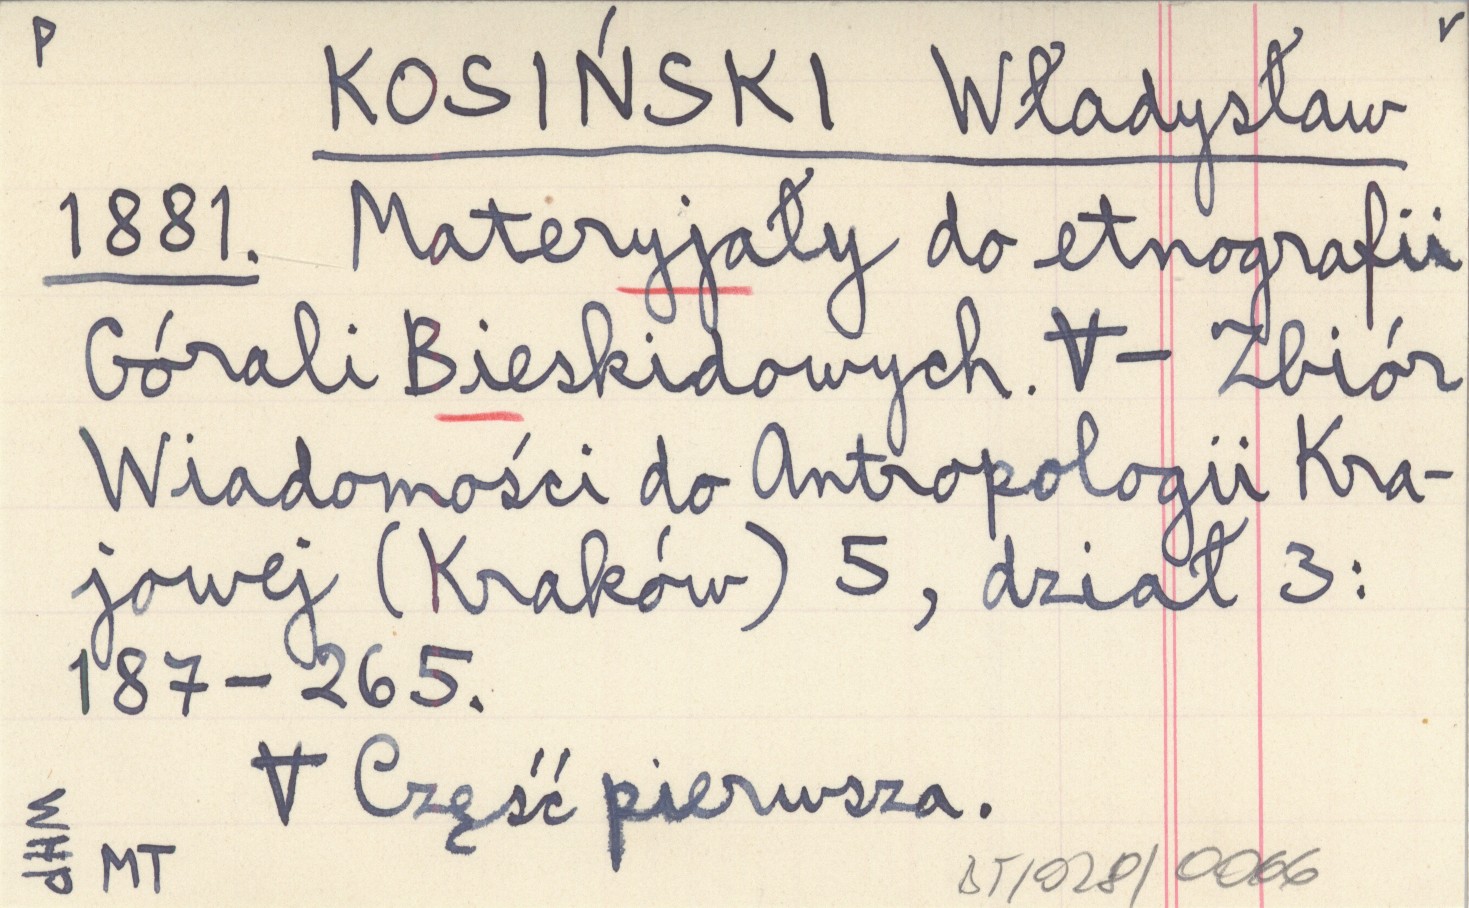 P
v
KOSIŃSKI Władysław
1881. Materyjały do etnografii
Górali Bieskidowych. ∀ — Zbiór
Wiadomości do Antropologii Kra-
jowej (Kraków) 5, dział 3:
187 – 265.
∀ Część pierwsza.
WHP
MT
BT/028/0066